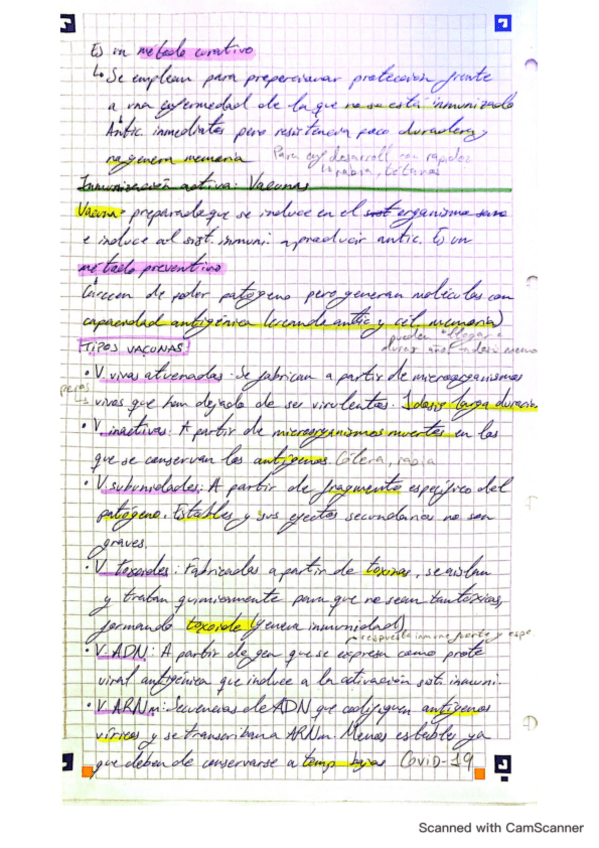 Es un método curativo
↳ Se emplean para preporcionar proteccion frente
a una enfermedad de la que no se está inmunizado
Antic. inmediatos pero resistencia poco duradera y
no genera memoria Para enf desarroll con rapidez
↳ rabia, tétanos
Inmunización activa: Vacunas
Vacuna: preparado que se induce en el sist organismo sano
e induce al sist. inmuni. a producir antic. Es un
método preventivo
Carecen de poder patógeno pero generan moléculas con
capacidad antigénica (creando antic y cél. memoria)
pueden llegar a
durar años dosis
TIPOS VACUNAS
• V vivas atenuadas: Se fabrican a partir de microorganismos
vivos que han dejado de ser virulentos. 1 dosis larga durac
• V inactivas: A partir de microorganismos muertos en los
que se conservan los antígenos. Cólera, rabia
• V. subunidades: A partir de fragmento específico del
patógeno. Estables y sus efectos secundarios no son
graves.
• V toxoides: Fabricadas a partir de toxinas, se aislan
y tratan quimicamente para que no sean tan tóxicas,
formando toxoide (genera inmunidad)
respuesta inmune fuerte y espe
• V. ADN: A partir de gen que se expresa como prote
viral antigénica que induce a la activación sist. inmuni.
• V. ARNm: Secuencias de ADN que codifiquen antígenos
víricos y se transcriban a ARNm. Menos estables ya
que deben de conservarse a temp bajas Covid-19
Scanned with CamScanner